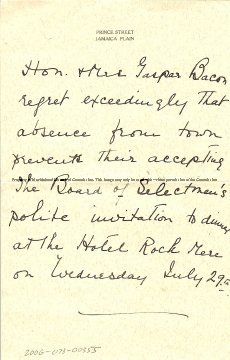 PRINCE STREET
JAMAICA PLAIN
Hon. & Mrs Gaspar Bacon
regret exceedingly that
absence from town
prevents their accepting
the Board of Selectmen's
polite invitation to dinner
at the Hotel Rock Mere
on Wednesday July 29.
2006-073-00355